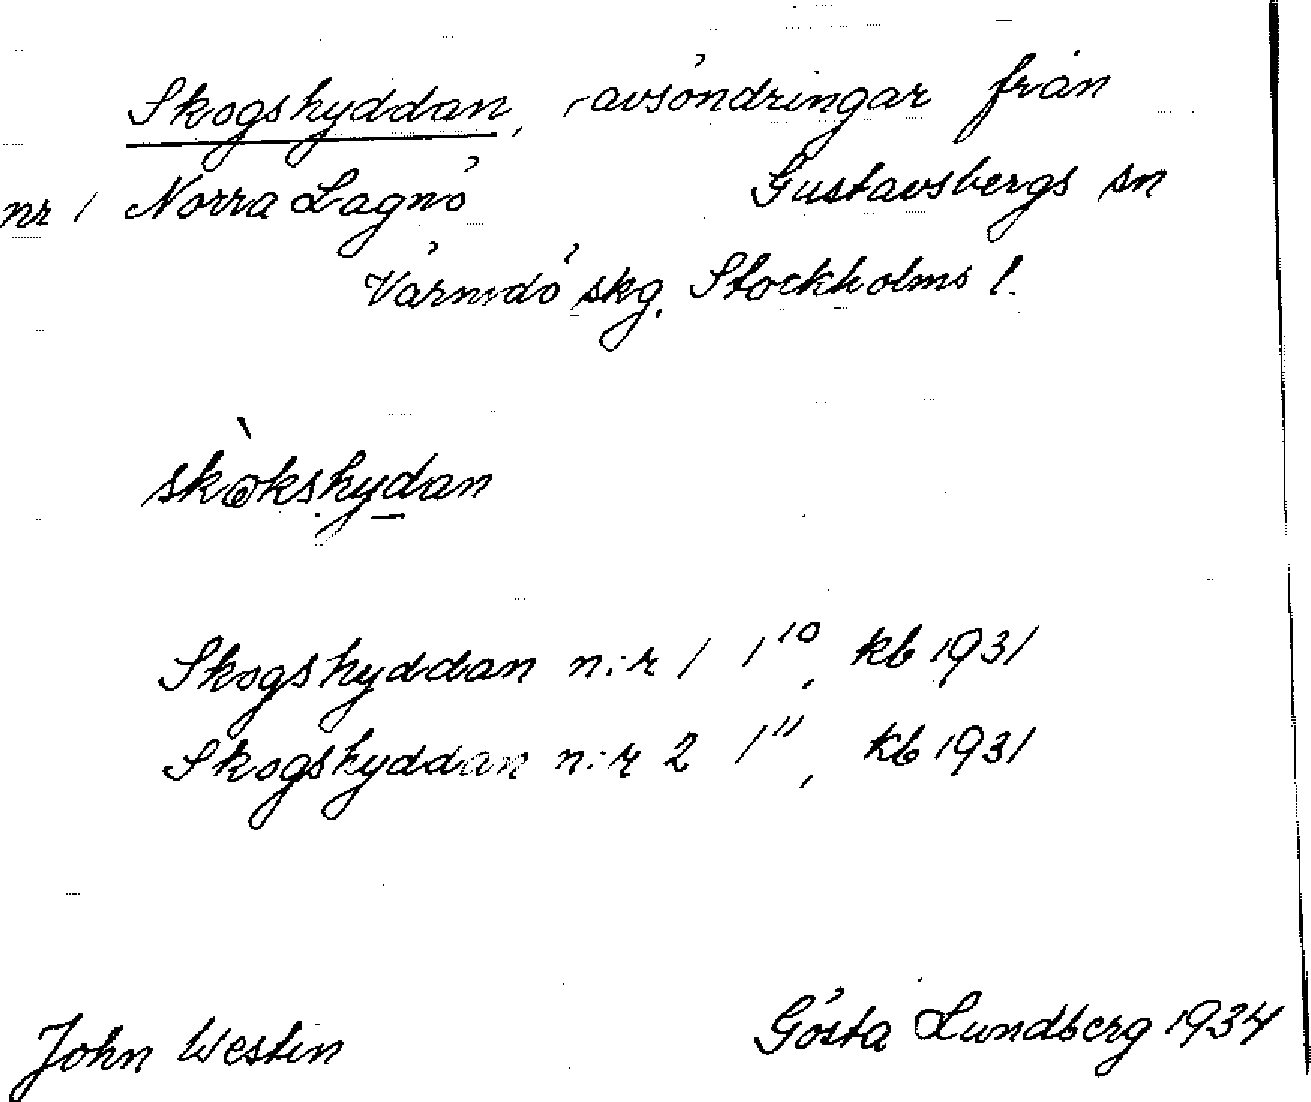 Skogshyddan, avsöndringar från
nr 1 Norra Lagnö Gustavsbergs sn
Värmdö skg. Stockholms l.
skòkshydan
Skogshyddan n:r 1 1¹⁰, kb 1931
Skogshyddan n:r 2 1¹¹, kb 1931
John Westin Gösta Lundberg 1934